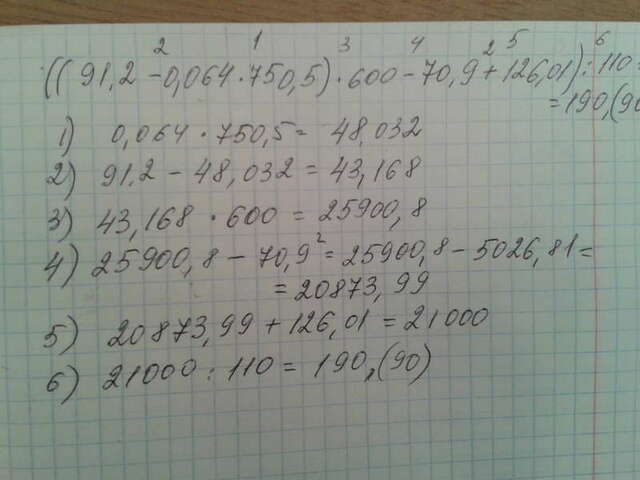 2 1 3 4 5 6
((91,2 - 0,064 · 750,5) · 600 - 70,9² + 126,01) : 110 =
= 190,(90
1) 0,064 · 750,5 = 48,032
2) 91,2 - 48,032 = 43,168
3) 43,168 · 600 = 25900,8
4) 25900,8 - 70,9² = 25900,8 - 5026,81 =
= 20873,99
5) 20873,99 + 126,01 = 21000
6) 21000 : 110 = 190,(90)